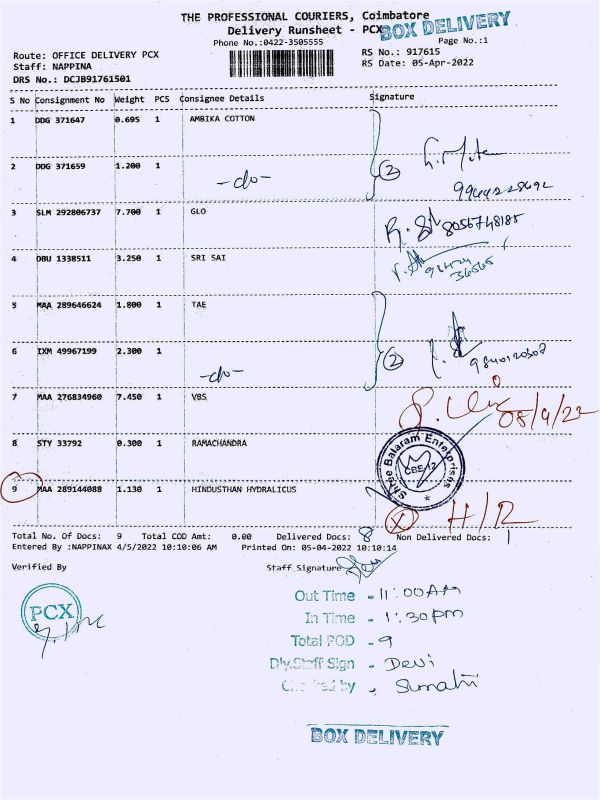 THE PROFESSIONAL COURIERS, Coimbatore
Delivery Runsheet - PCX
BOX DELIVERY
Phone No.:0422-3505555
Page No.:1
Route: OFFICE DELIVERY PCX
RS No.: 917615
Staff: NAPPINA
RS Date: 05-Apr-2022
DRS No.: DCJB91761501
S No Consignment No Weight PCS Consignee Details Signature
1 DDG 371647 0.695 1 AMBIKA COTTON
2 DDG 371659 1.200 1
-do- 2
9944228692
3 SLM 292806737 7.700 1 GLO
8056748185
4 DBU 1338511 3.250 1 SRI SAI
5 MAA 289646624 1.800 1 TAE
6 IXM 49967199 2.300 1
-do- 2 9840120307
7 MAA 276834960 7.450 1 VBS
05/4/22
8 STY 33792 0.300 1 RAMACHANDRA
Shree Balaram Enterprises
CBE-12
9 MAA 289144088 1.130 1 HINDUSTHAN HYDRALICUS
X H/R
Total No. Of Docs: 9 Total COD Amt: 0.00 Delivered Docs: 8 Non Delivered Docs: 1
Entered By :NAPPINAX 4/5/2022 10:10:06 AM Printed On: 05-04-2022 10:10:14
Verified By Staff Signature
PCX
Out Time - 11:00AM
In Time - 1:30pm
Total POD - 9
Dly.Staff Sign - Devi
Checked by - Sumathi
BOX DELIVERY